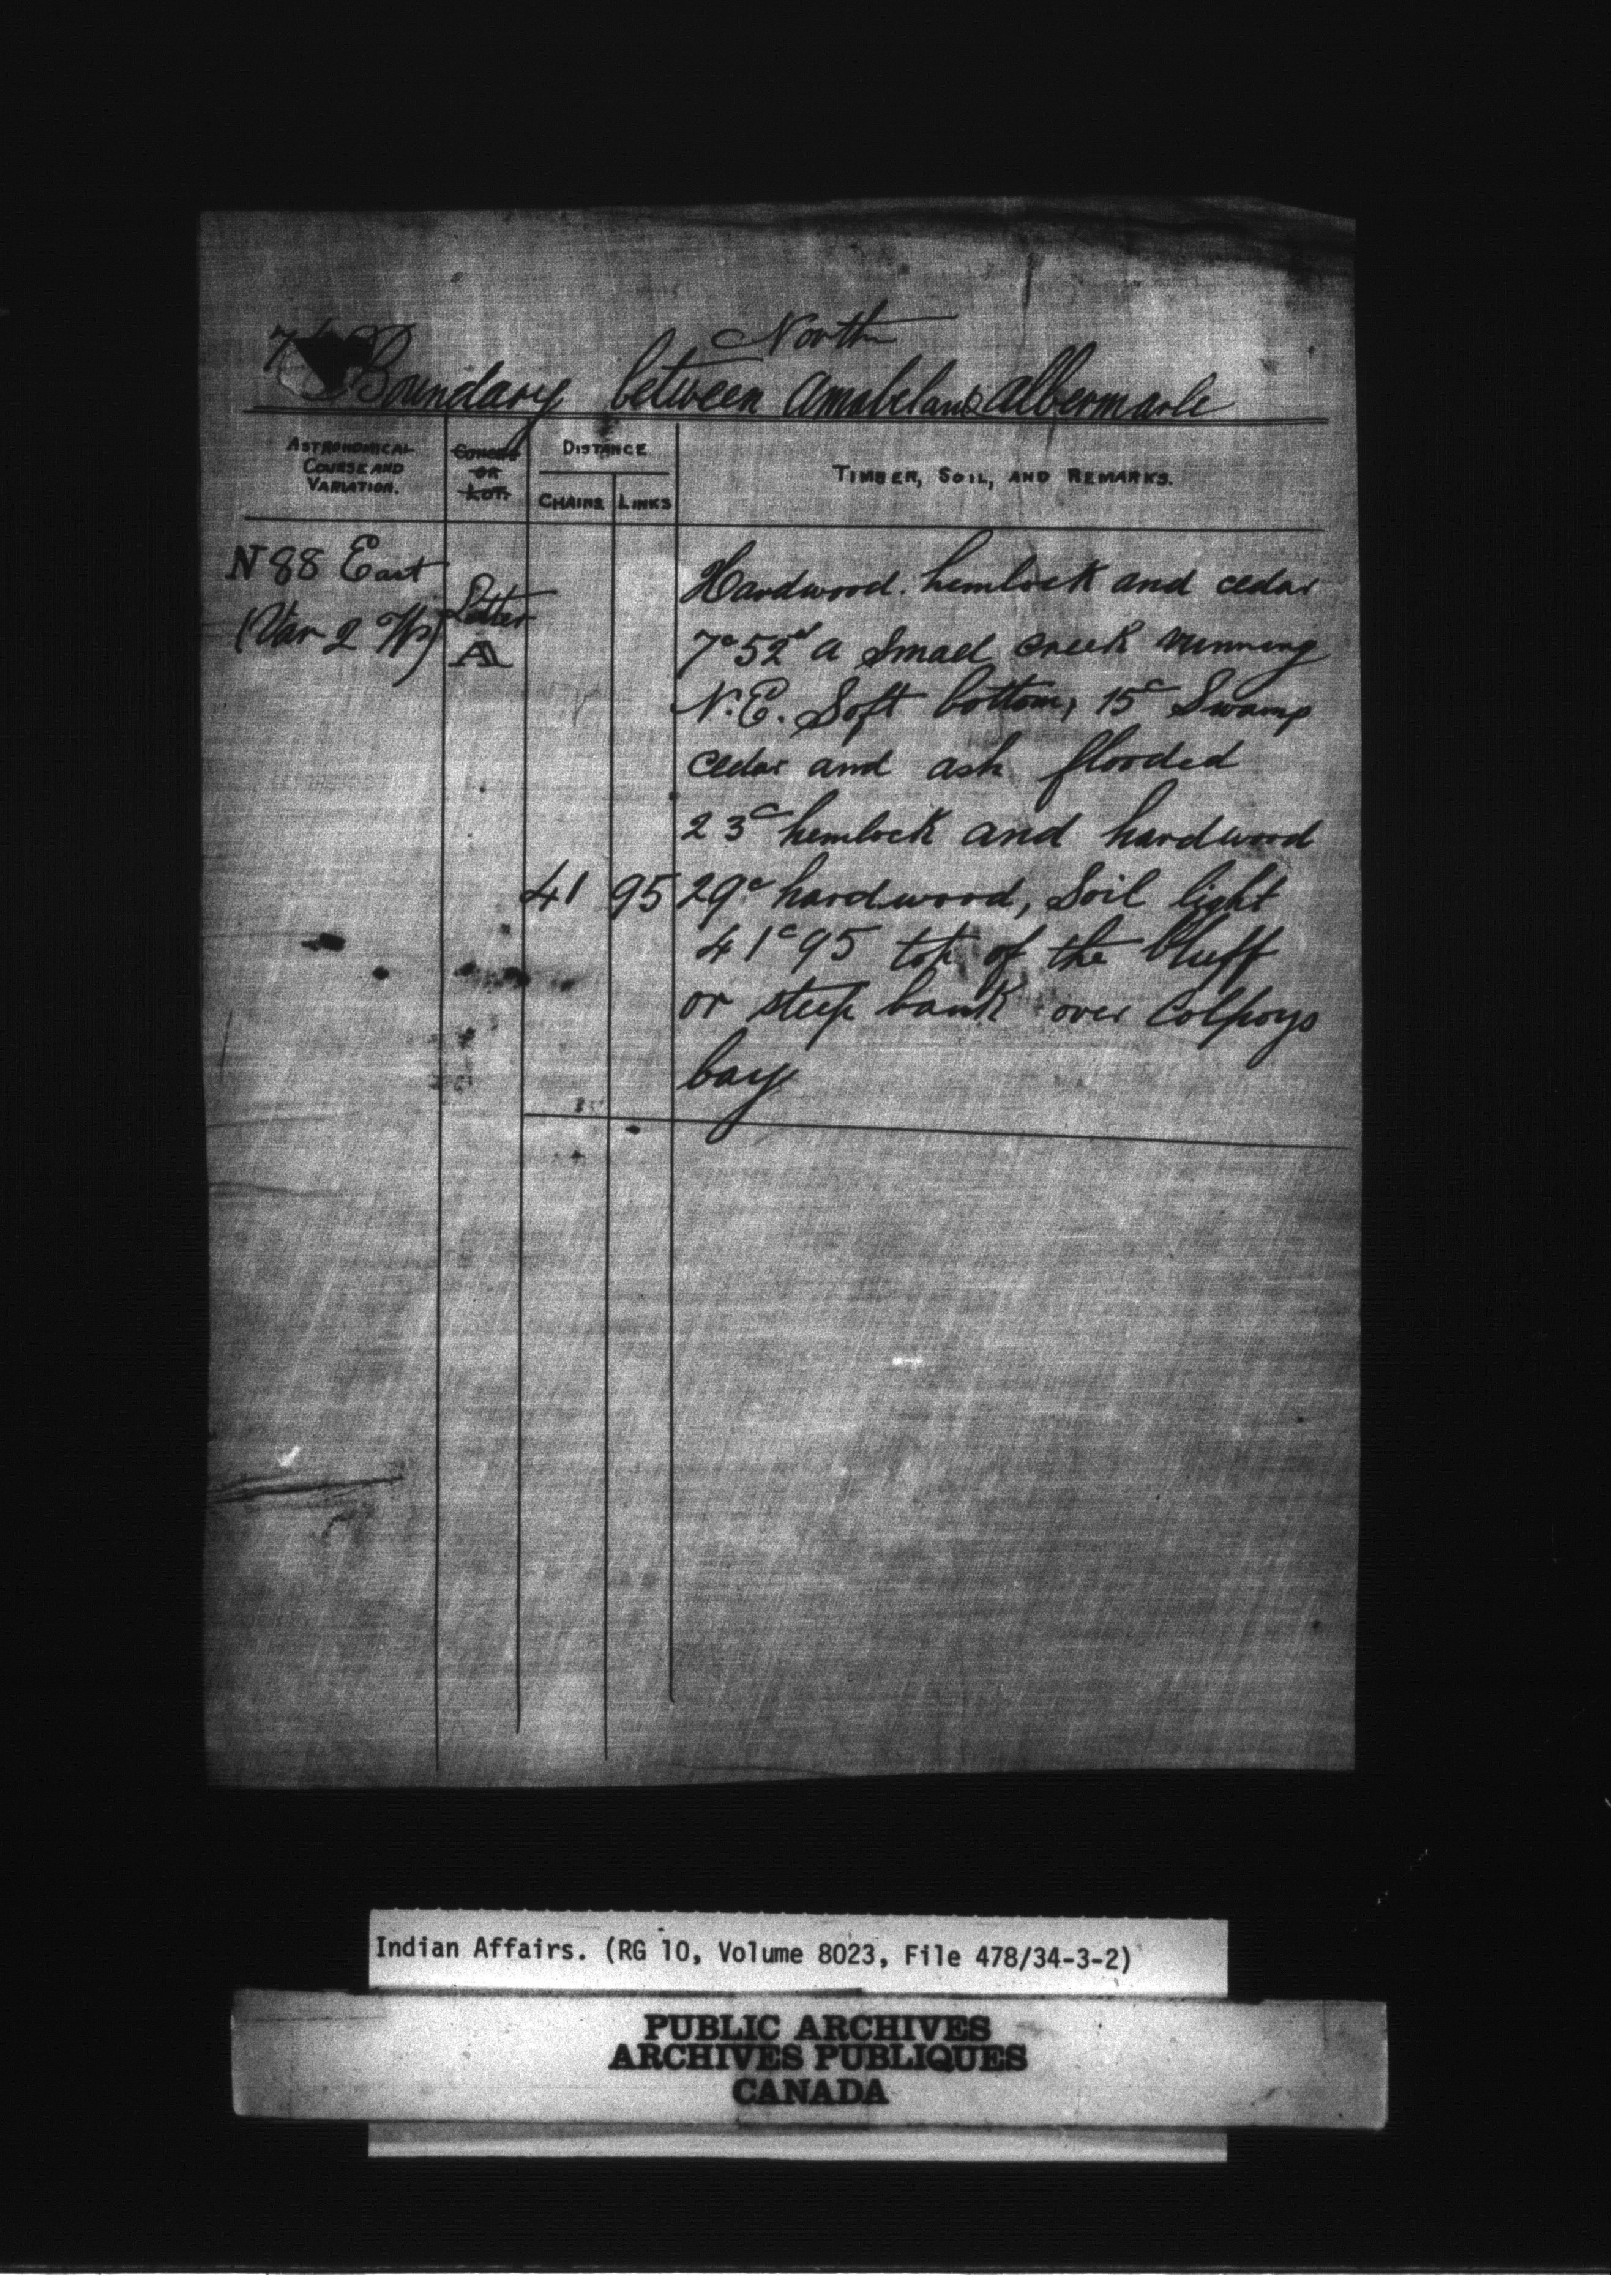 North
Boundary between Amabel and Albermarle
ASTRONOMICAL COURSE AND VARIATION.
CONCES OR LOT.
DISTANCE
CHAINS LINKS
TIMBER, SOIL, AND REMARKS.
N 88 East
(Var 2 W)
Letter
A
Hardwood. hemlock and cedar
7c 52 a small creek running
N.E. Soft bottom, 15c Swamp
cedar and ash flooded
23c hemlock and hardwood
41 95 29c hardwood, Soil light
41c 95 top of the bluff
or steep bank over Colpoys
bay
Indian Affairs. (RG 10, Volume 8023, File 478/34-3-2)
PUBLIC ARCHIVES
ARCHIVES PUBLIQUES
CANADA